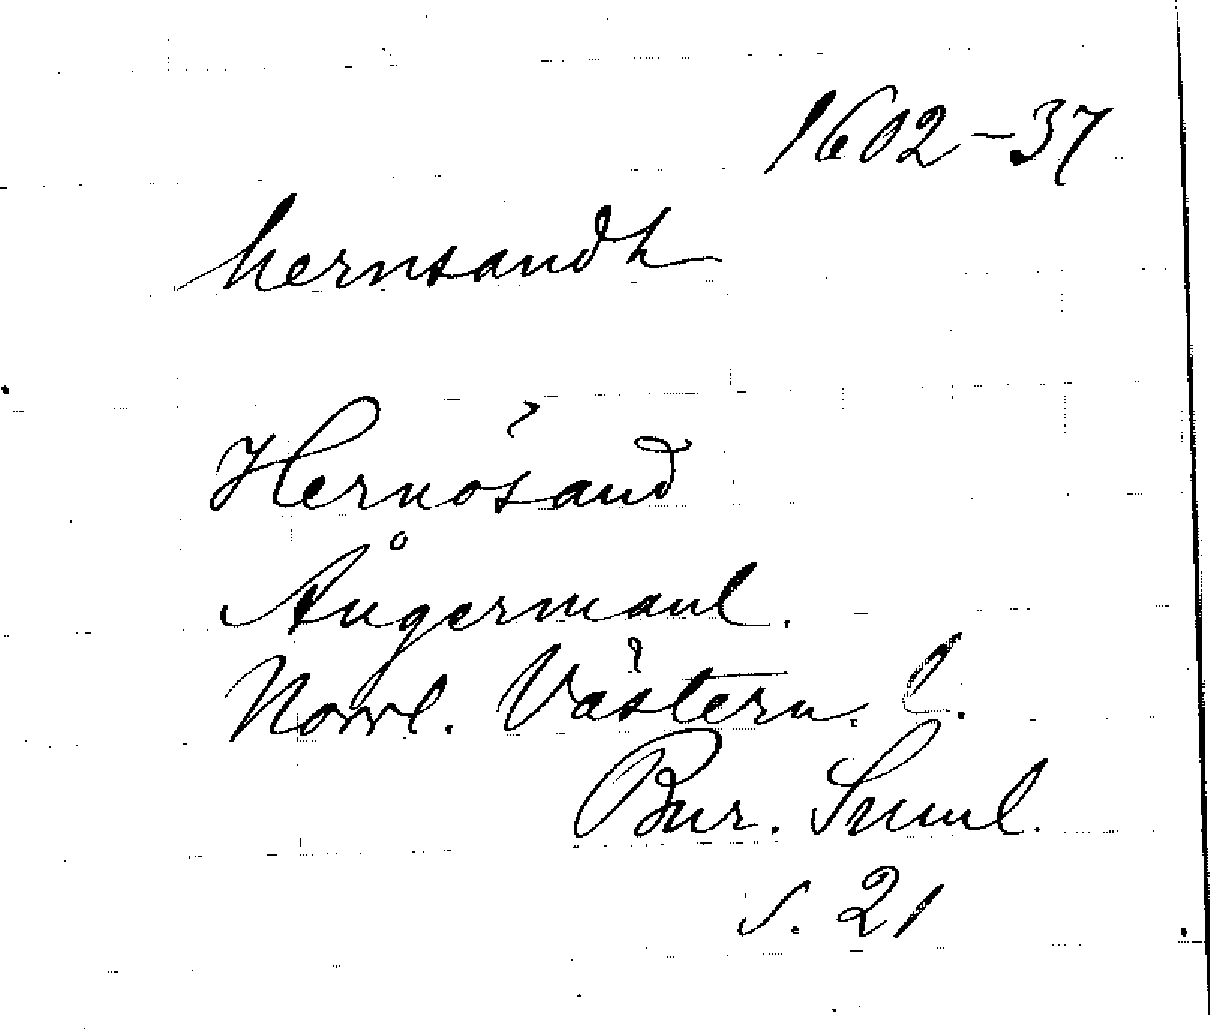 1602-37
hernsandh
Hernösand
Ångermanl.
Norrl. Västern. l.
Bur. Suml.
s. 21